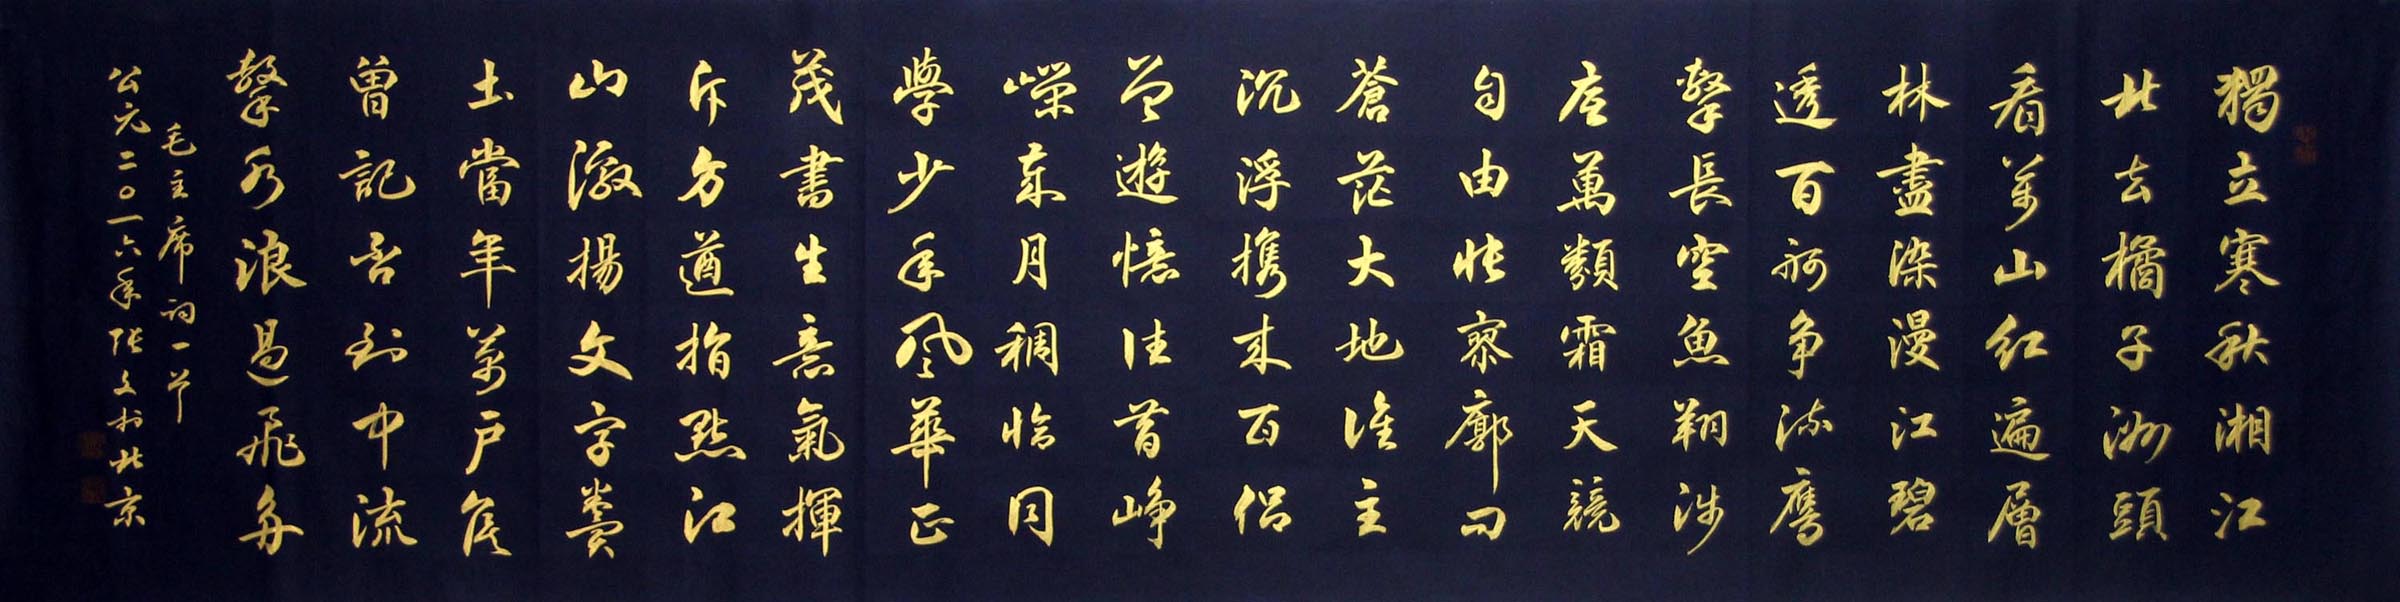 獨立寒秋湘江
北去橘子洲頭
看萬山红遍層
林盡染漫江碧
透百舸争流鹰
擊長空魚翔浅
底萬類霜天競
自由悵寥廓问
蒼茫大地谁主
沉浮携来百侣
曾遊憶往昔峥
嶸歲月稠恰同
學少年风華正
茂書生意氣揮
斥方遒指點江
山激揚文字糞
土當年萬户侯
曾記否到中流
擊水浪遏飛舟
毛主席词一首
公元二〇一六年张文於北京